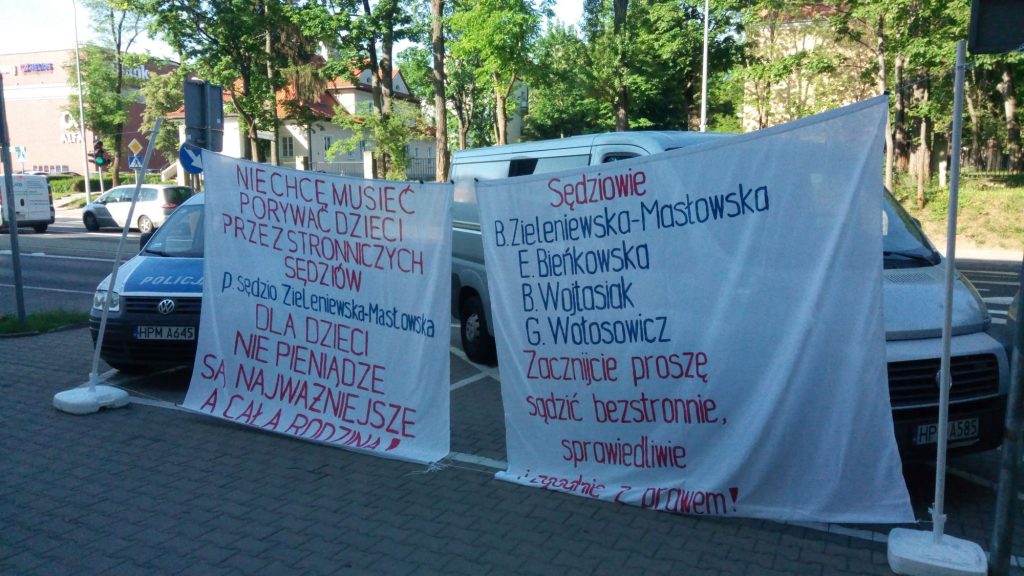 NIE CHCĘ MUSIEĆ
PORYWAĆ DZIECI
PRZEZ STRONNICZYCH
SĘDZIÓW
p. SĘDZIO ZIELENIEWSKA-MASŁOWSKA
DLA DZIECI
NIE PIENIĄDZE
SĄ NAJWAŻNIEJSZE
A CAŁA RODZINA!
Sędziowie
B. Zieleniewska-Masłowska
E. Bieńkowska
B. Wojtasiak
G. Wołosowicz
Zacznijcie proszę
sądzić bezstronnie,
sprawiedliwie
i zgodnie z prawem!
POLICJA
HPM A645
HPM A585